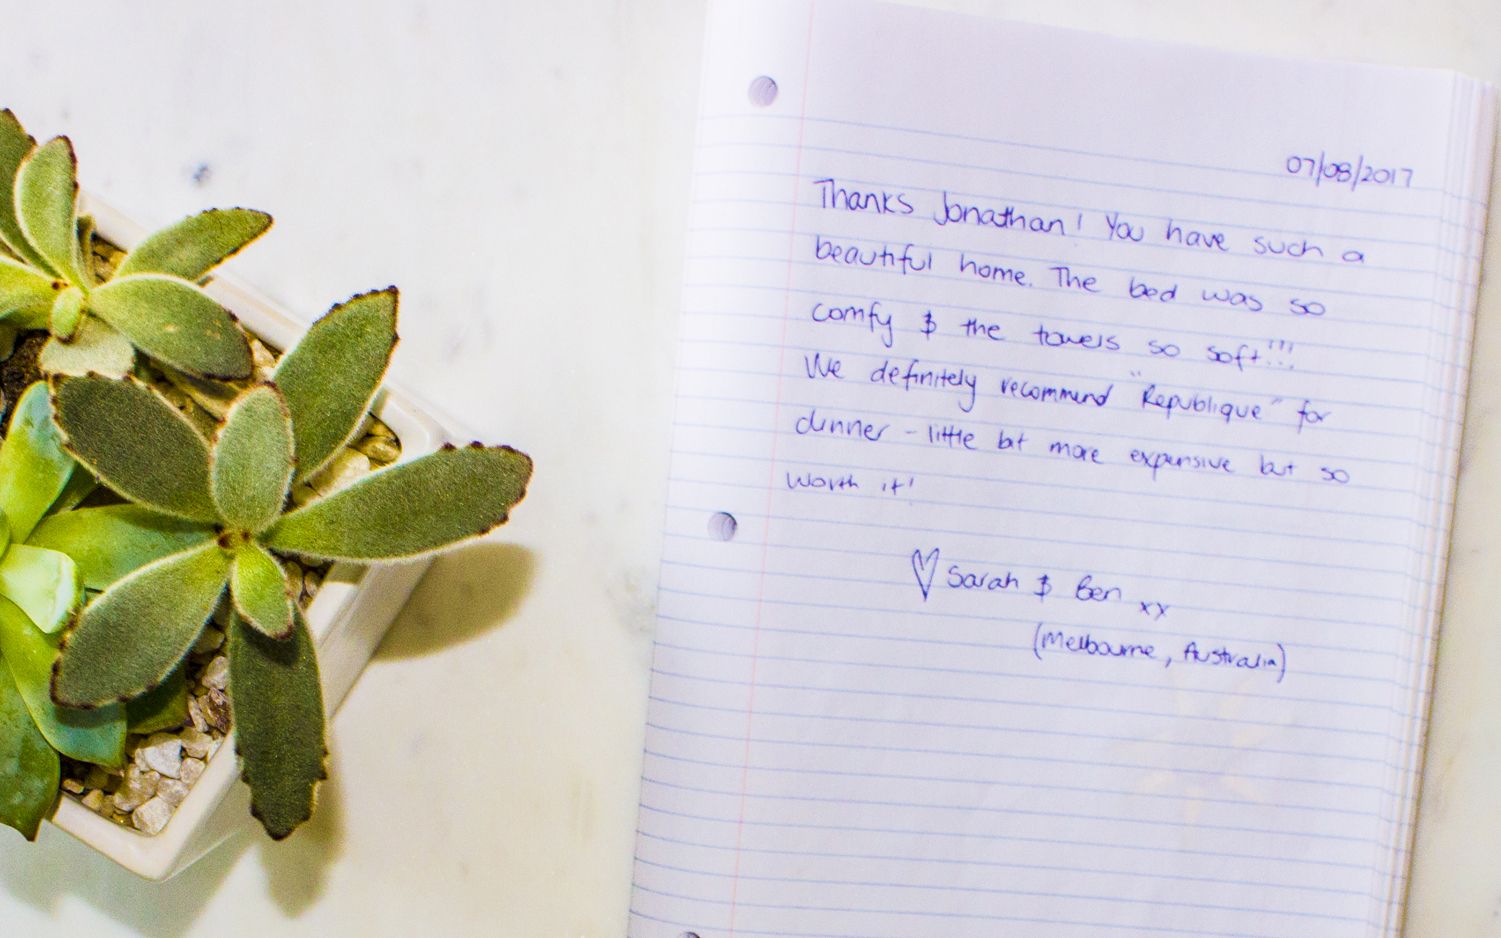 07/08/2017
Thanks Jonathan! You have such a
beautiful home. The bed was so
comfy & the towels so soft!!!
We definitely recommend "Republique" for
dinner - little bit more expensive but so
worth it!
♡ Sarah & Ben xx
(Melbourne, Australia)